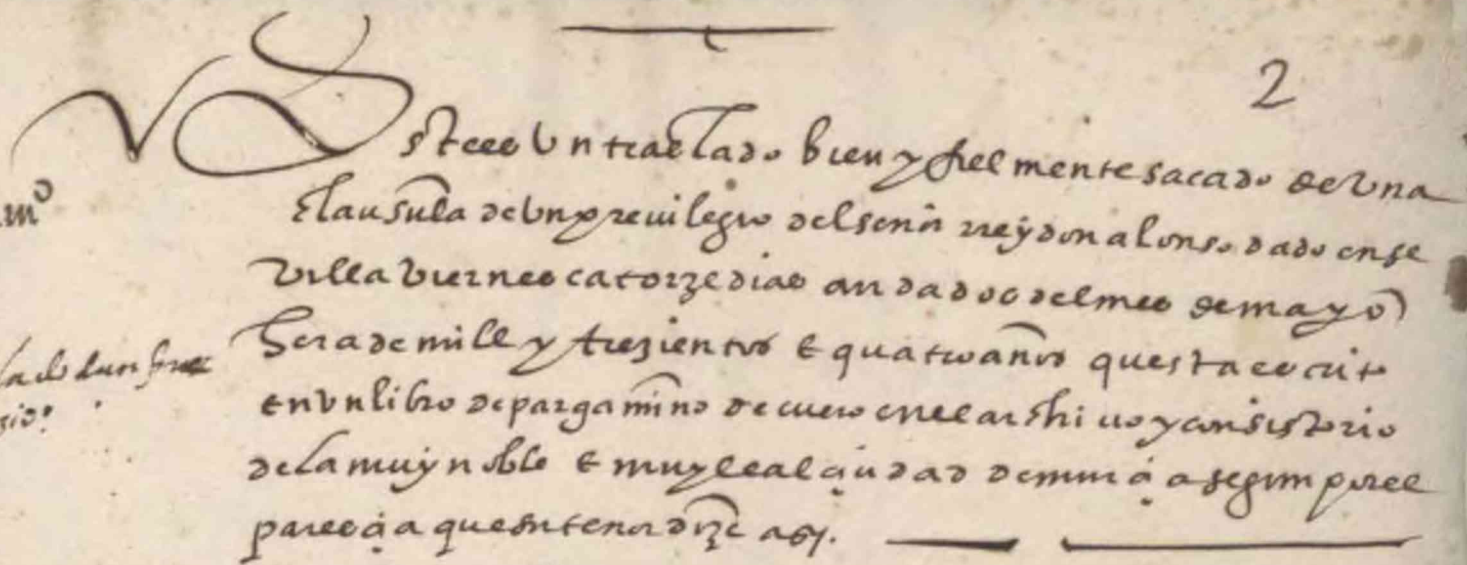 2
Este es Un traslado bien y fielmente sacado de Una
clausula de Un previlegio del señor rrey don alonso dado en se
villa viernes catorze dias andados del mes de mayo
hera de mill y trezientos E quatro años questa escrito
en vn libro de pargamino de cuero en el archivo y consistorio
de la muy noble E muy leal ciudad de murcia segun por el
parecia que su tenor dize asy.